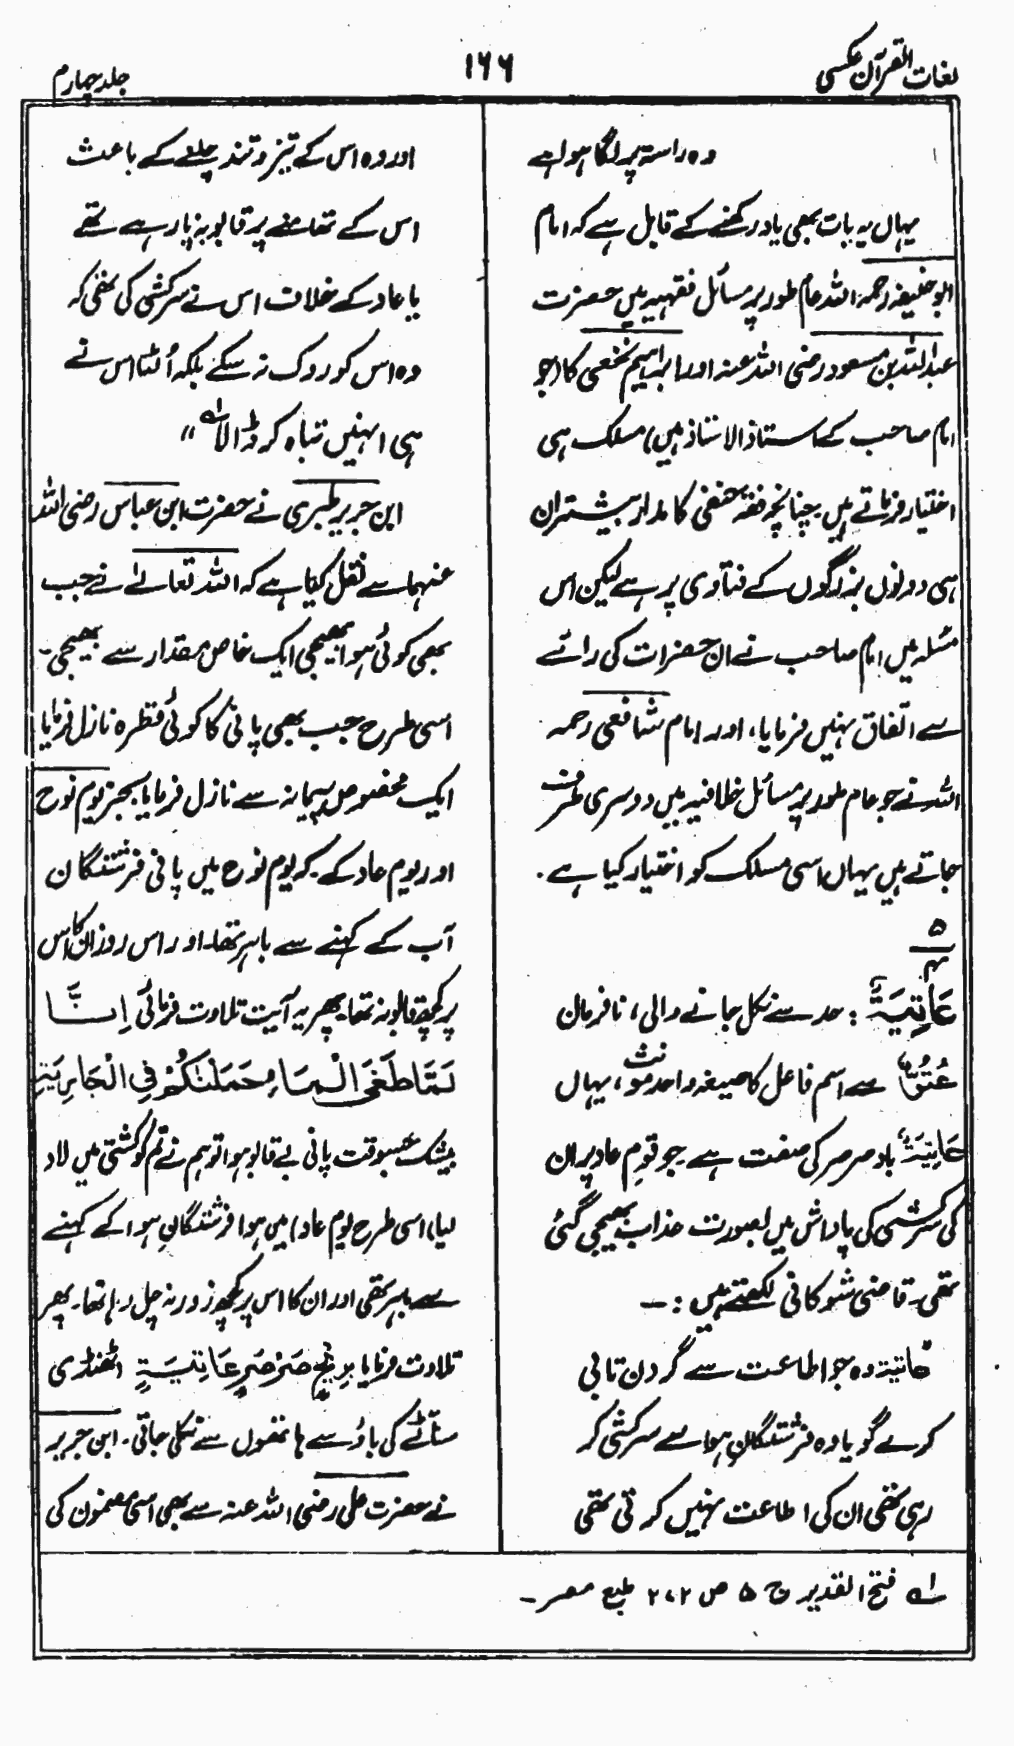 لغات القرآن عکسی
۱۶۶
جلد چہارم
وہ راستہ پر لگا ہوا ہے
یہاں یہ بات بھی یاد رکھنے کے قابل ہے کہ امام
ابو حنیفہ رحمہ اللہ عام طور پر مسائل فقہیہ میں حضرت
عبد اللہ بن مسعود رضی اللہ عنہ اور ابراہیم نخعی کا (جو
امام صاحب کے استاذ الاستاذ ہیں) مسلک ہی
اختیار فرماتے ہیں چنانچہ فقہ حنفی کا مدار بیشتر ان
ہی دونوں بزرگوں کے فتاوی پر ہے لیکن اس
مسئلہ میں امام صاحب نے ان حضرات کی رائے
سے اتفاق نہیں فرمایا، اور امام شافعی رحمہ
اللہ نے جو عام طور پر مسائل خلافیہ میں دوسری طرف
جاتے ہیں یہاں اسی مسلک کو اختیار کیا ہے۔
۵
۴
عَاتِیَۃٍ : حد سے نکل جانے والی، نافرمان
عُتُوٌّ سے اسم فاعل کا صیغہ واحد مونث، یہاں
عَاتِیَۃٍ باد صرصر کی صفت ہے جو قوم عاد پر ان
کی سرکشی کی پاداش میں بصورت عذاب بھیجی گئی
تھی۔ قاضی شوکانی لکھتے ہیں :۔
"عاتیۃ وہ جو اطاعت سے گردن تابی
کرے گویا وہ فرشتگان ہوا سے سرکشی کر
رہی تھی ان کی اطاعت نہیں کرتی تھی
اور وہ اس کے تیز و تند چلنے کے باعث
اس کے تھامنے پر قابو نہ پا رہے تھے
یا عاد کے خلاف اس نے سرکشی کی تھی کہ
وہ اس کو روک نہ سکے بلکہ اُلٹا اس نے
ہی انہیں تباہ کر ڈالا ؂۱"
ابن جریر طبری نے حضرت ابن عباس رضی اللہ
عنہما سے نقل کیا ہے کہ اللہ تعالےٰ نے جب
بھی کوئی ہوا بھیجی ایک خاص مقدار سے بھیجی۔
اسی طرح جب بھی پانی کا کوئی قطرہ نازل فرمایا
ایک مخصوص پیمانہ سے نازل فرمایا بجز یوم نوح
اور یوم عاد کے۔ کہ یوم نوح میں پانی فرشتگان
آب کے کہنے سے باہر تھا۔ اور اس روز ان کا اس
پر کچھ قابو نہ تھا۔ پھر یہ آیت تلاوت فرمائی اِنَّا
لَمَّا طَغَی الْمَاءُ حَمَلْنٰکُمْ فِی الْجَارِیَۃِ
بیشک جسوقت پانی بے قابو ہوا تو ہم نے تم کو کشتی میں لاد
لیا) اسی طرح یوم عاد میں ہوا فرشتگانِ ہوا کے کہنے
سے باہر تھی اور ان کا اس پر کچھ زور نہ چل رہا تھا۔ پھر
تلاوت فرمایا بِرِیْحٍ صَرْصَرٍ عَاتِیَۃٍ (ٹھنڈی
سناٹے کی باؤ سے ہاتھوں سے نکلی جاتی۔ ابن جریر
نے حضرت علی رضی اللہ عنہ سے بھی اسی مضمون کی
؂۱ فتح القدیر ج ۵ ص ۲۷۲ طبع مصر۔